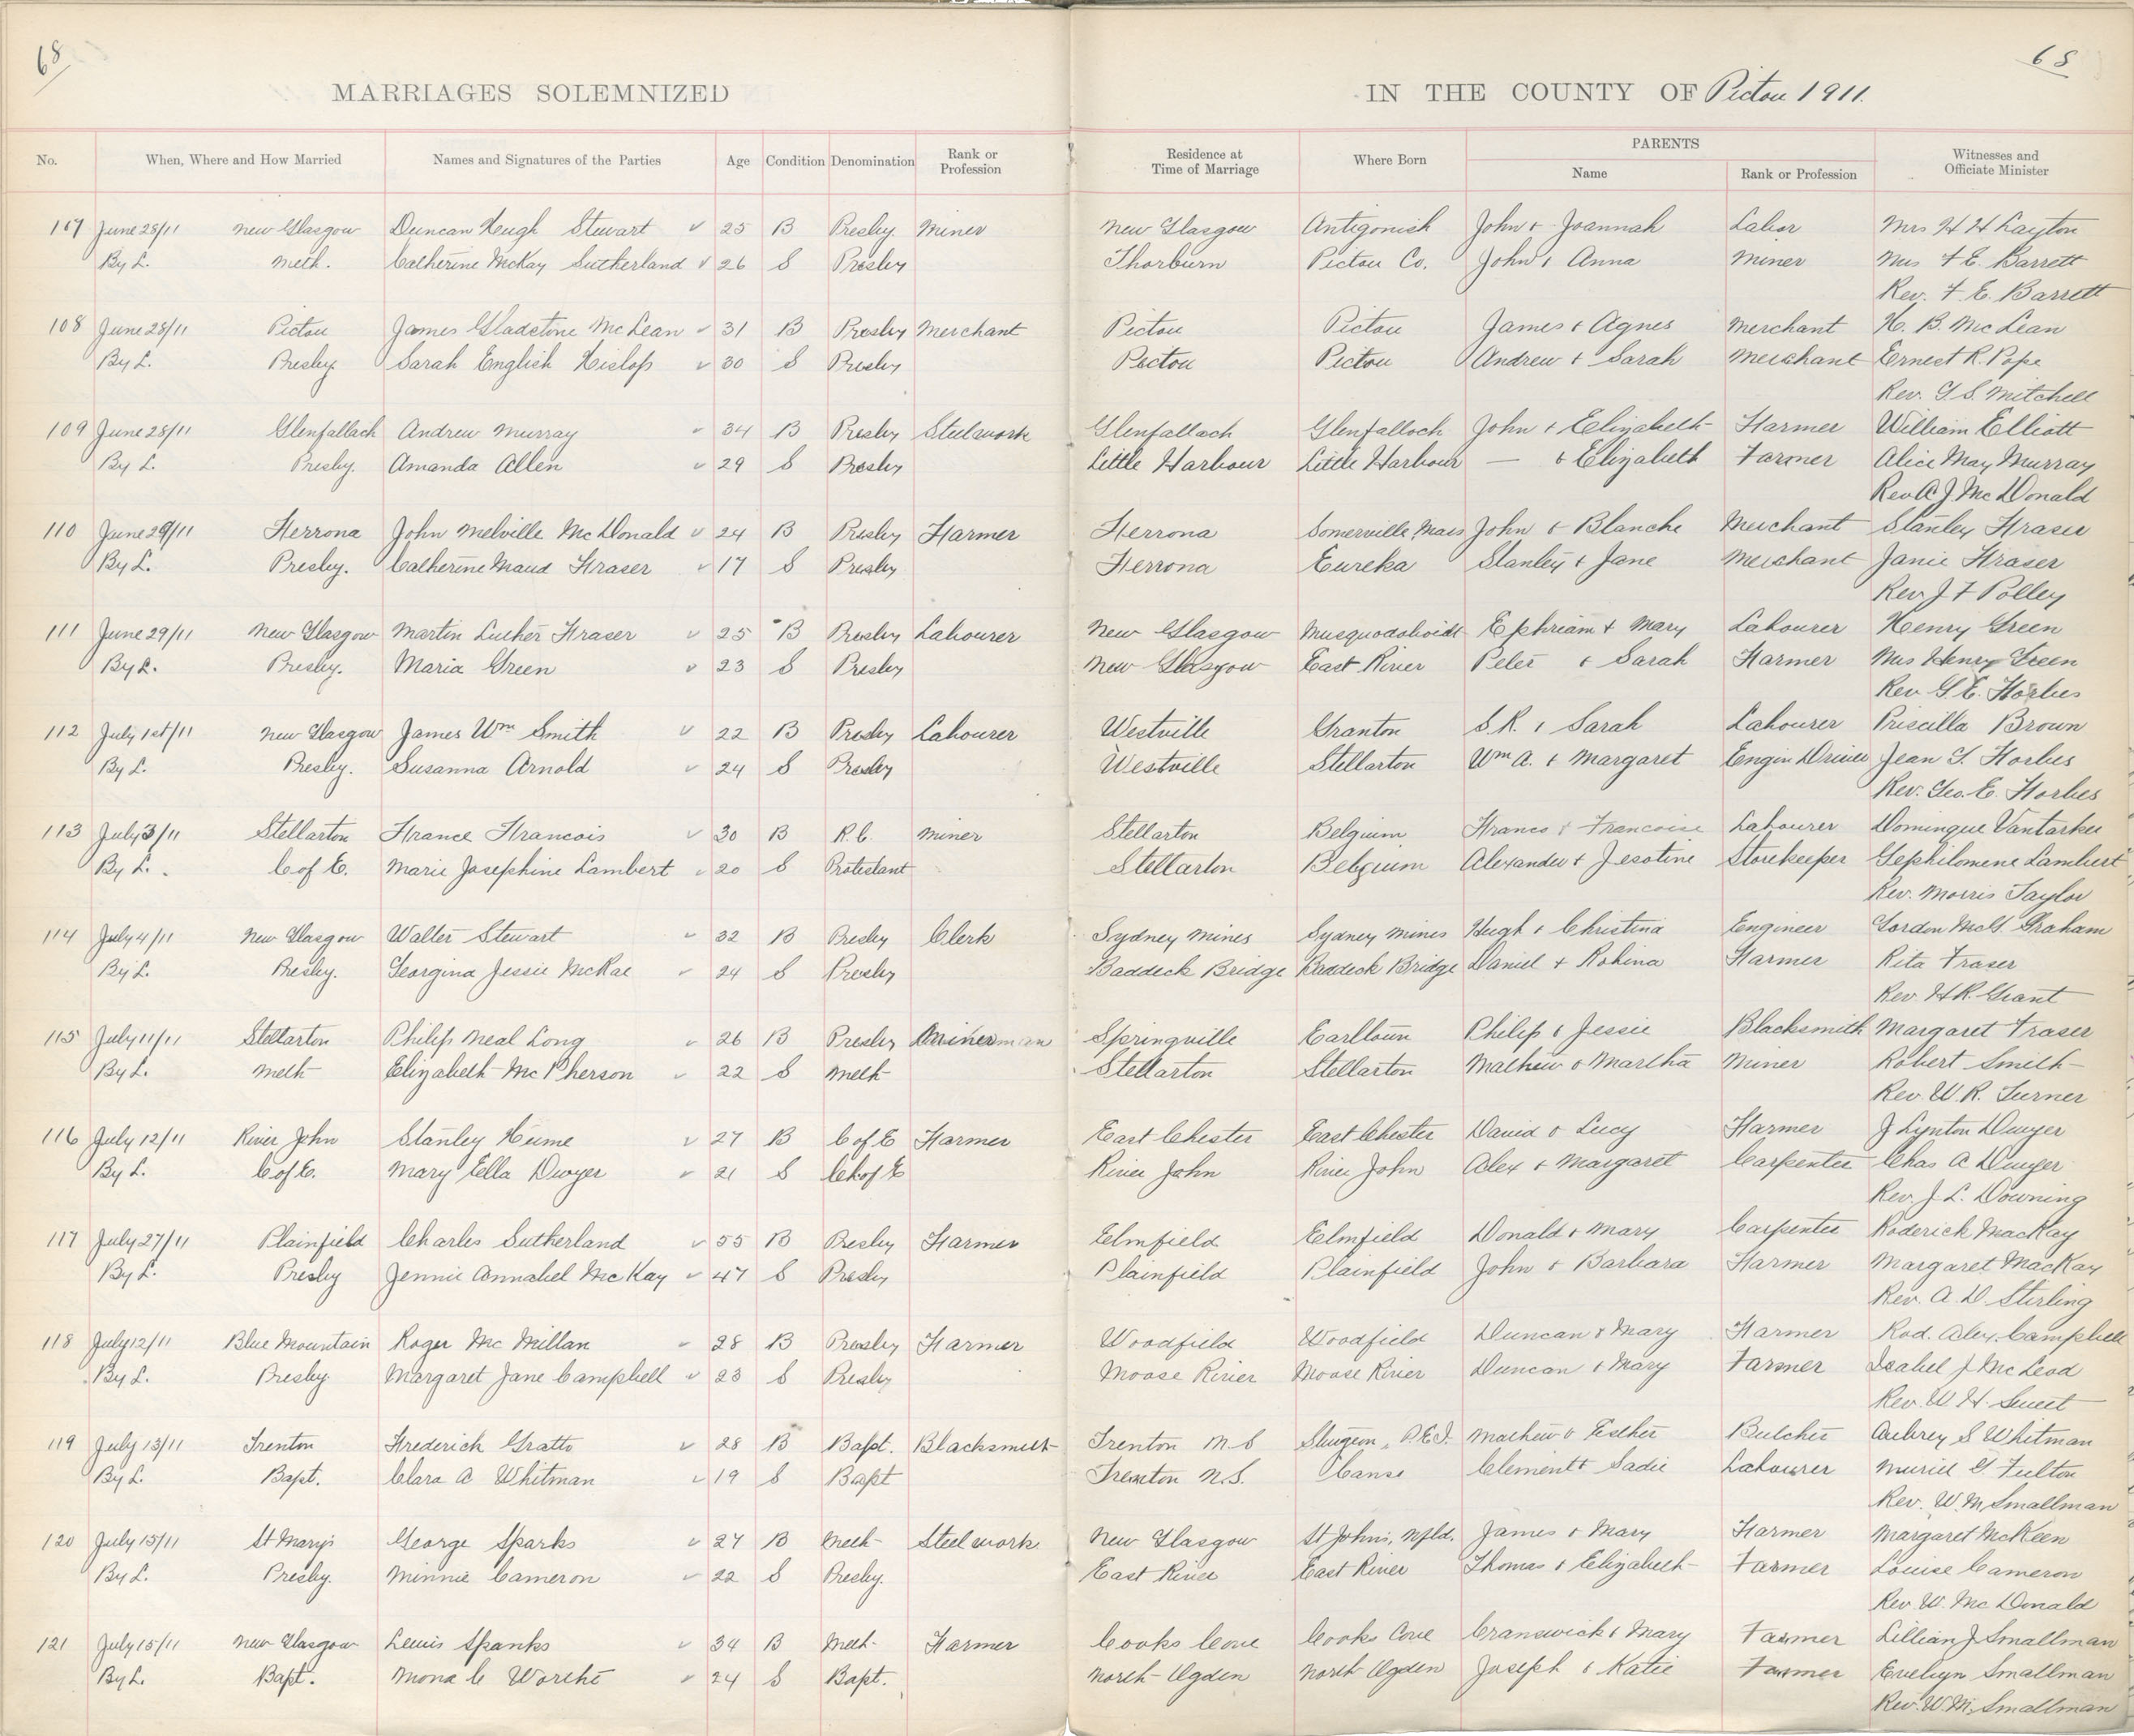 68
68
MARRIAGES SOLEMNIZED IN THE COUNTY OF Pictou 1911.
No. When, Where and How Married Names and Signatures of the Parties Age Condition Denomination Rank or Profession Residence at Time of Marriage Where Born PARENTS Name Rank or Profession Witnesses and Officiate Minister
107 June 28/11 New Glasgow Duncan Hugh Stewart 25 B Presby. Miner New Glasgow Antigonish John & Joannah Labor Mrs H H Layton
By L. Meth. Catherine McKay Sutherland 26 S Presby Thorburn Pictou Co. John & Anna Miner Mrs F E. Barrett
Rev. F. E. Barrett
108 June 28/11 Pictou James Gladstone McLean 31 B Presby Merchant Pictou Pictou James & Agnes Merchant H. B. McLean
By L. Presby. Sarah English Hislop 30 S Presby Pictou Pictou Andrew & Sarah Merchant Ernest R. Pope
Rev. G. S. Mitchell
109 June 28/11 Glenfallach Andrew Murray 34 B Presby Steelwork Glenfalloch Glenfalloch John & Elizabeth Farmer William Elliott
By L. Presby. Amanda Allen 29 S Presby Little Harbour Little Harbour — & Elizabeth Farmer Alice May Murray
Rev A. J. McDonald
110 June 29/11 Ferrona John Melville McDonald 24 B Presby Farmer Ferrona Somerville, Mass John & Blanche Merchant Stanley Fraser
By L. Presby. Catherine Maud Fraser 17 S Presby Ferrona Eureka Stanley & Jane Merchant Janie Fraser
Rev J F Polley
111 June 29/11 New Glasgow Martin Luther Fraser 25 B Presby Labourer New Glasgow Musquodoboidt Ephriam & Mary Labourer Henry Green
By L. Presby. Maria Green 23 S Presby New Glasgow East River Peter & Sarah Farmer Mrs Henry Green
Rev G E. Forbes
112 July 1st/11 New Glasgow James Wm Smith 22 B Presby Labourer Westville Granton S. R. & Sarah Labourer Priscilla Brown
By L. Presby. Susanna Arnold 24 S Presby Westville Stellarton Wm A. & Margaret Engin Driver Jean S. Forbes
Rev. Geo. E. Forbes
113 July 3/11 Stellarton France Francois 30 B R.C. Miner Stellarton Belgium Franco & Francoise Labourer Domingue
By L. C of E. Marie Josephine Lambert 20 S Protestant Stellarton Belgium Alexander & Jesotine Storekeeper Gephilomene Lambert
Rev. Morris Taylor
114 July 4/11 New Glasgow Walter Stewart 32 B Presby Clerk Sydney Mines Sydney Mines Hugh & Christina Engineer Gordon McG. Graham
By L. Presby. Georgina Jessie McRae 24 S Presby Baddeck Bridge Baddeck Bridge Daniel & Robina Farmer Rita Fraser
Rev. H.R. Grant
115 July 11/11 Stellarton Philip Neal Long 26 B Presby Springville Earltown Philip & Jessie Blacksmith Margaret Fraser
By L. Meth Elizabeth McPherson 22 S Meth Stellarton Stellarton Mathew & Martha Miner Robert Smith
Rev. W. R. Turner
116 July 12/11 River John Stanley Hume 27 B C of E Farmer East Chester East Chester David & Lucy Farmer J Lynton Dwyer
By L. C of E. Mary Ella Dwyer 21 S Ch of E River John River John Alex & Margaret Carpenter Chas A Dwyer
Rev. J. L. Downing
117 July 27/11 Plainfield Charles Sutherland 55 B Presby Farmer Elmfield Elmfield Donald & Mary Carpenter Roderick MacKay
By L. Presby Jennie Annabel McKay 47 S Presby Plainfield Plainfield John & Barbara Farmer Margaret MacKay
Rev. A. D Stirling
118 July 12/11 Blue Mountain Roger McMillan 28 B Presby Farmer Woodfield Woodfield Duncan & Mary Farmer Rod. Alex. Campbell
By L. Presby. Margaret Jane Campbell 23 S Presby Moose River Moose River Duncan & Mary Farmer Isabel J. McLeod
Rev. W. H. Sweet
119 July 13/11 Trenton Frederick Gratto 28 B Bapt. Blacksmith Trenton N S Sturgeon, P.E.I. Mathew & Esther Butcher Aubrey S Whitman
By L. Bapt. Clara A Whitman 19 S Bapt Trenton N.S. Canso Clement & Sadie Labourer Muriel G. Fulton
Rev. W. M. Smallman
120 July 15/11 St Mary's George Sparks 27 B Meth Steel work New Glasgow St Johns, Nfld. James & Mary Farmer Margaret McKeen
By L. Presby. Minnie Cameron 22 S Presby. East River East River Thomas & Elizabeth Farmer Louise Cameron
Rev. W. McDonald
121 July 15/11 New Glasgow Lewis Spanks 34 B Meth Farmer Cooks Cove Cooks Cove Cranswick & Mary Farmer Lillian J. Smallman
By L. Bapt. Mona C Worthe 24 S Bapt. North Ogden North Ogden Joseph & Katie Farmer Evelyn Smallman
Rev. W. M. Smallman